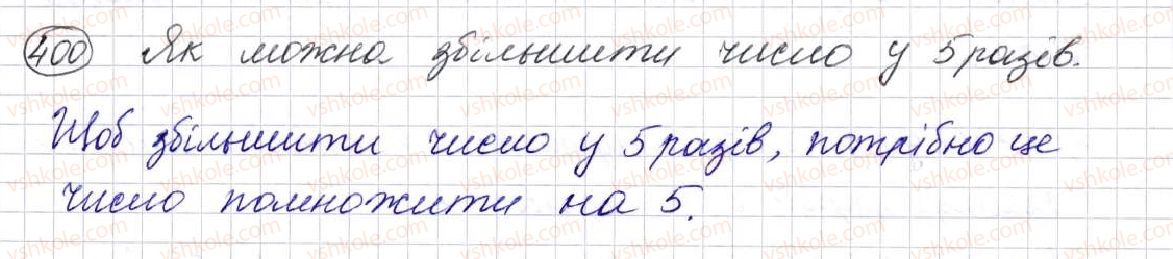 400 Як можна збільшити число у 5 разів.
Щоб збільшити число у 5 разів, потрібно це
число помножити на 5.